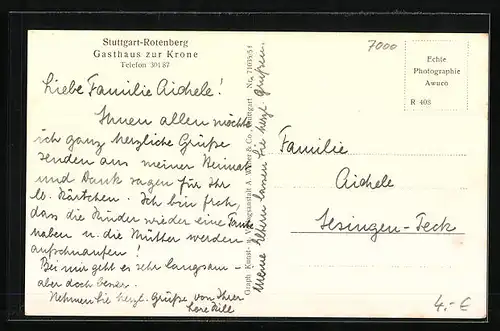 Stuttgart-Rotenberg
Gasthaus zur Krone
Telefon 30187
Liebe Familie Aichele!
Ihnen allen möchte
ich ganz herzliche Grüße
senden aus meiner Heimat
und Dank sagen für Ihr
lb. Kärtchen. Ich bin froh,
dass die Kinder wieder eine Tante
haben u. die Mütter werden
aufschnaufen!
Bei mir geht es sehr langsam –
aber doch besser.
Nehmen Sie herzl. Grüße von Ihrer
Lore
Meine Eltern lassen Sie herzl. grüßen.
Graph. Kunst- u. Verlagsanstalt A. Weber & Co. Stuttgart No.
7000
Echte
Photographie
Awuco
R 403
Familie
Aichele
Jesingen-Teck
4.-€